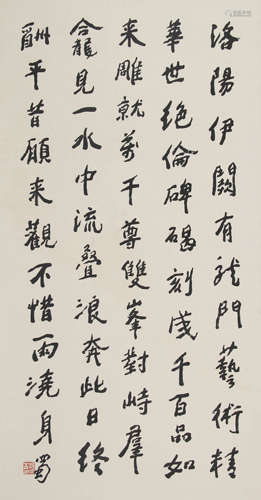 洛陽伊闕有龍門藝術精
華世絕倫碑碣刻成千百品如
来雕就萬千尊雙峯對峙群
龕見一水中流疊浪奔此日終
酬平昔願来觀不惜雨澆身蜀